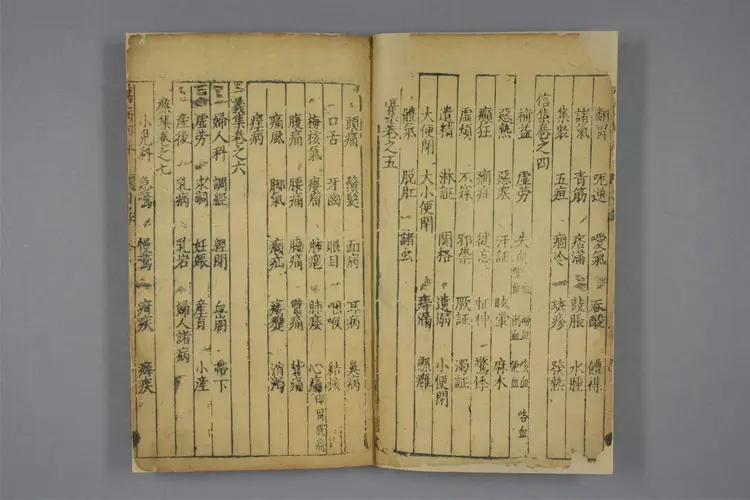 翻胃 呃逆 噯氣 吞酸 嘈雜
諸氣 青筋 痞滿 鼓脹 水腫
集裝 五疸 痼冷 斑疹 發熱
信集卷之四
補益 虛勞 失血 咯血
惡熱 惡寒 汗証 眩暈 麻木
癲狂 癇症 健忘 怔忡 驚悸
虛煩 不寐 邪祟 厥証 濁証
遺精 淋証 関格 遺溺 小便閉
大便閉 大小便閉 痔漏 懸癰
體氣 脱肛 諸虫
集卷之五
頭痛 鬚髮 面病 耳病 鼻病
口舌 牙齒 眼目 咽喉 結核
梅核氣 癭瘤 肺癰 肺痿 心痛即胃脘痛
腹痛 腰痛 脇痛 臂痛 背痛
痛風 脚氣 㿗疝 痿躄 消渴
痙病
義集卷之六
婦人科 調經 經閉 血崩 帶下
虛勞 求嗣 妊娠 產育 小產
產後 乳病 乳岩 婦人諸病
集卷之七
小兒科 急驚 慢驚 疳疾 癖疾